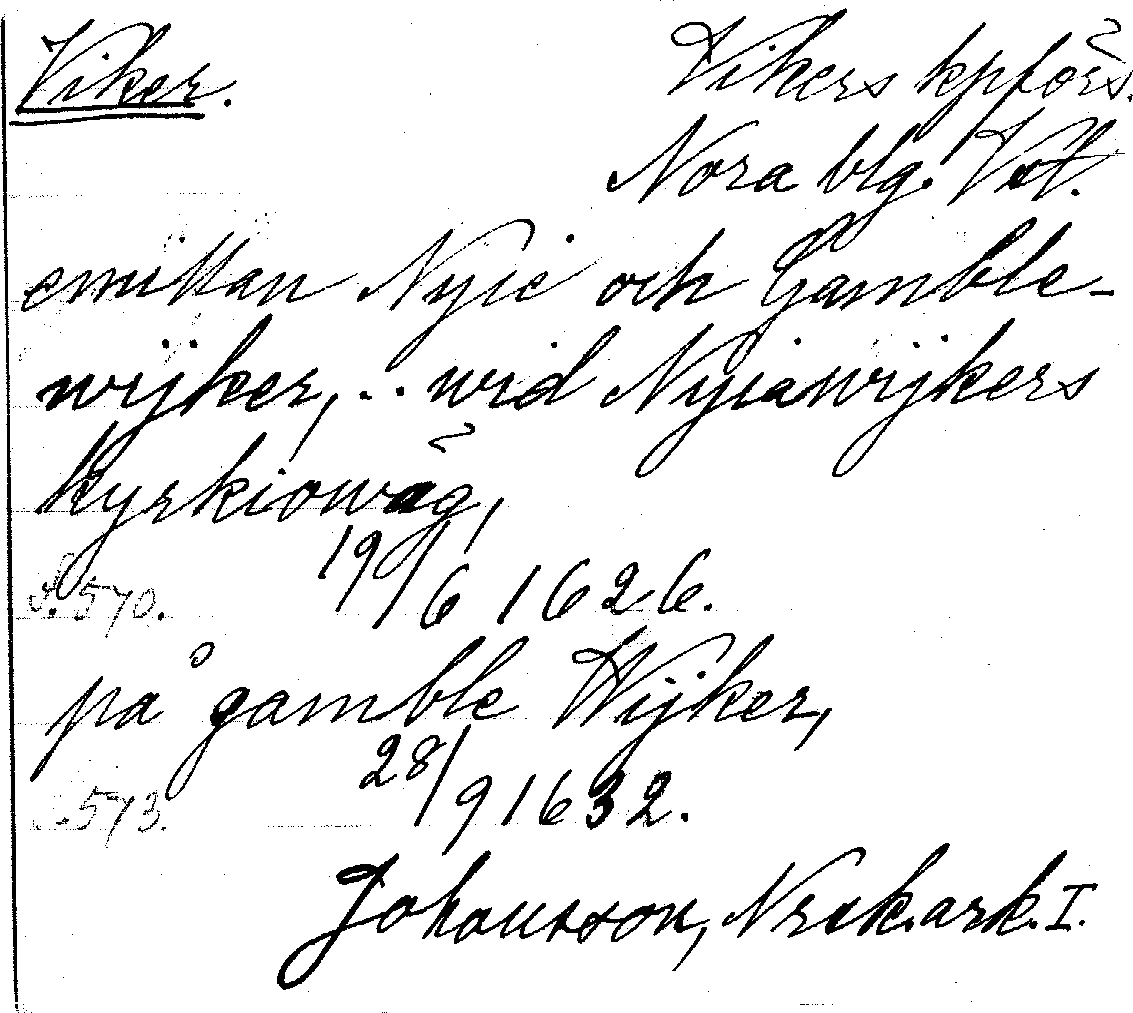 Viker. Vikers kpförs.
Nora blg. Vstm.
emillan Nyie och Gamble-
wijker, .. wid Nyiawijkers
kyrkiowäg,
S. 570. 19/6 1626.
på gamble Wijker,
S. 573. 28/9 1632.
Johansson, Norask. ark. I.